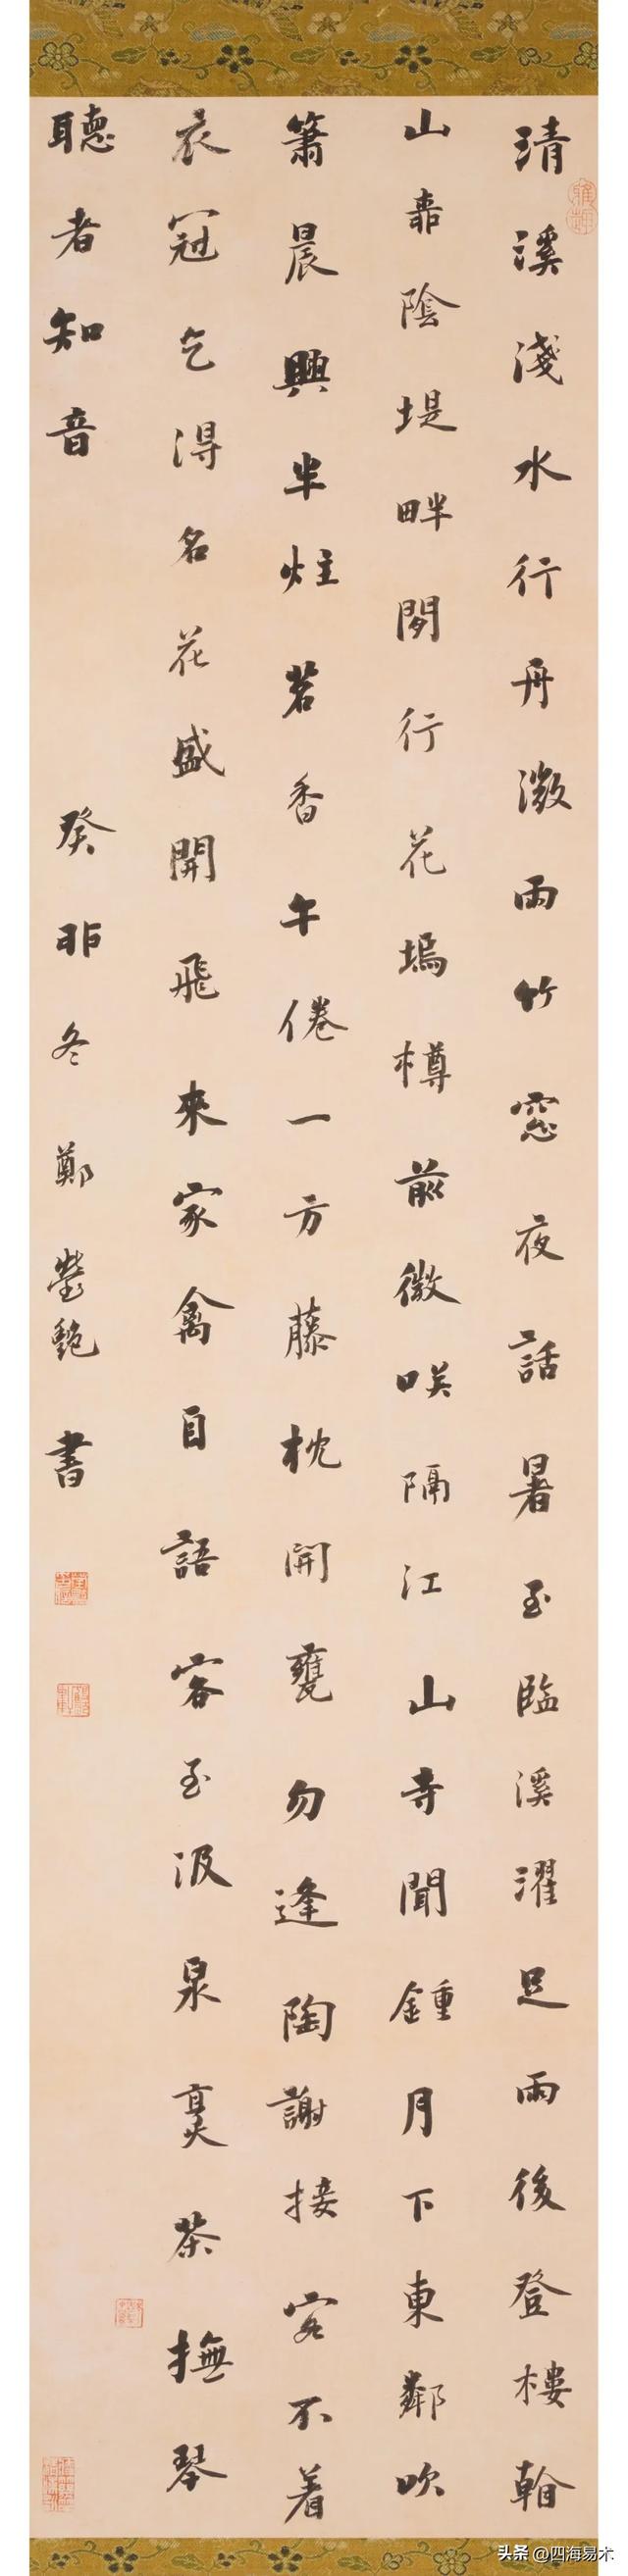 清溪淺水行舟微雨竹窓夜話暑至臨溪濯足雨後登樓看
山柳陰堤畔閒行花塢樽前微咲隔江山寺聞鍾月下東鄰吹
簫晨興半炷茗香午倦一方藤枕開甕勿逢陶謝接客不着
衣冠乞得名花盛開飛來家禽自語客至汲泉烹茶撫琴
聽者知音
癸卯冬鄭書
头条 @四海易木